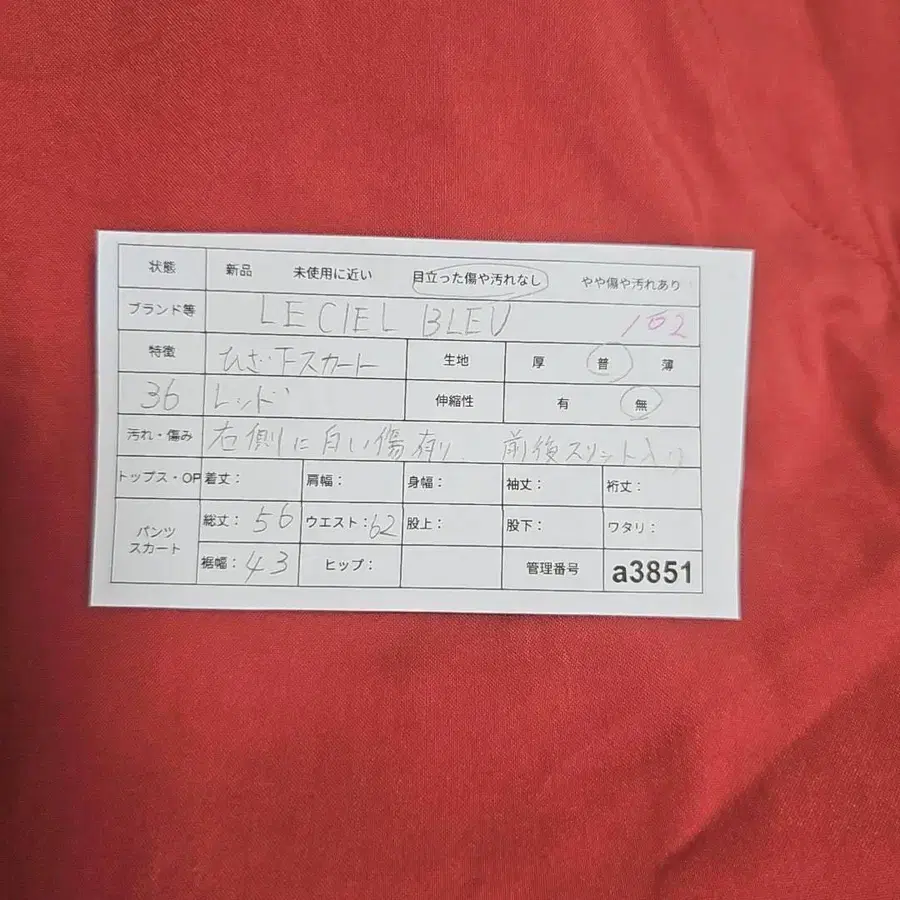 状態 新品 未使用に近い 目立った傷や汚れなし やや傷や汚れあり
ブランド等 LE CIEL BLEU 162
特徴 ひざ下スカート 生地 厚 普 薄
36 レッド 伸縮性 有 無
汚れ・傷み 右側に白い傷有り 前後スリット入り
トップス・OP 着丈: 肩幅: 身幅: 袖丈: 裄丈:
パンツ スカート 総丈: 56 ウエスト: 62 股上: 股下: ワタリ:
裾幅: 43 ヒップ: 管理番号 a3851